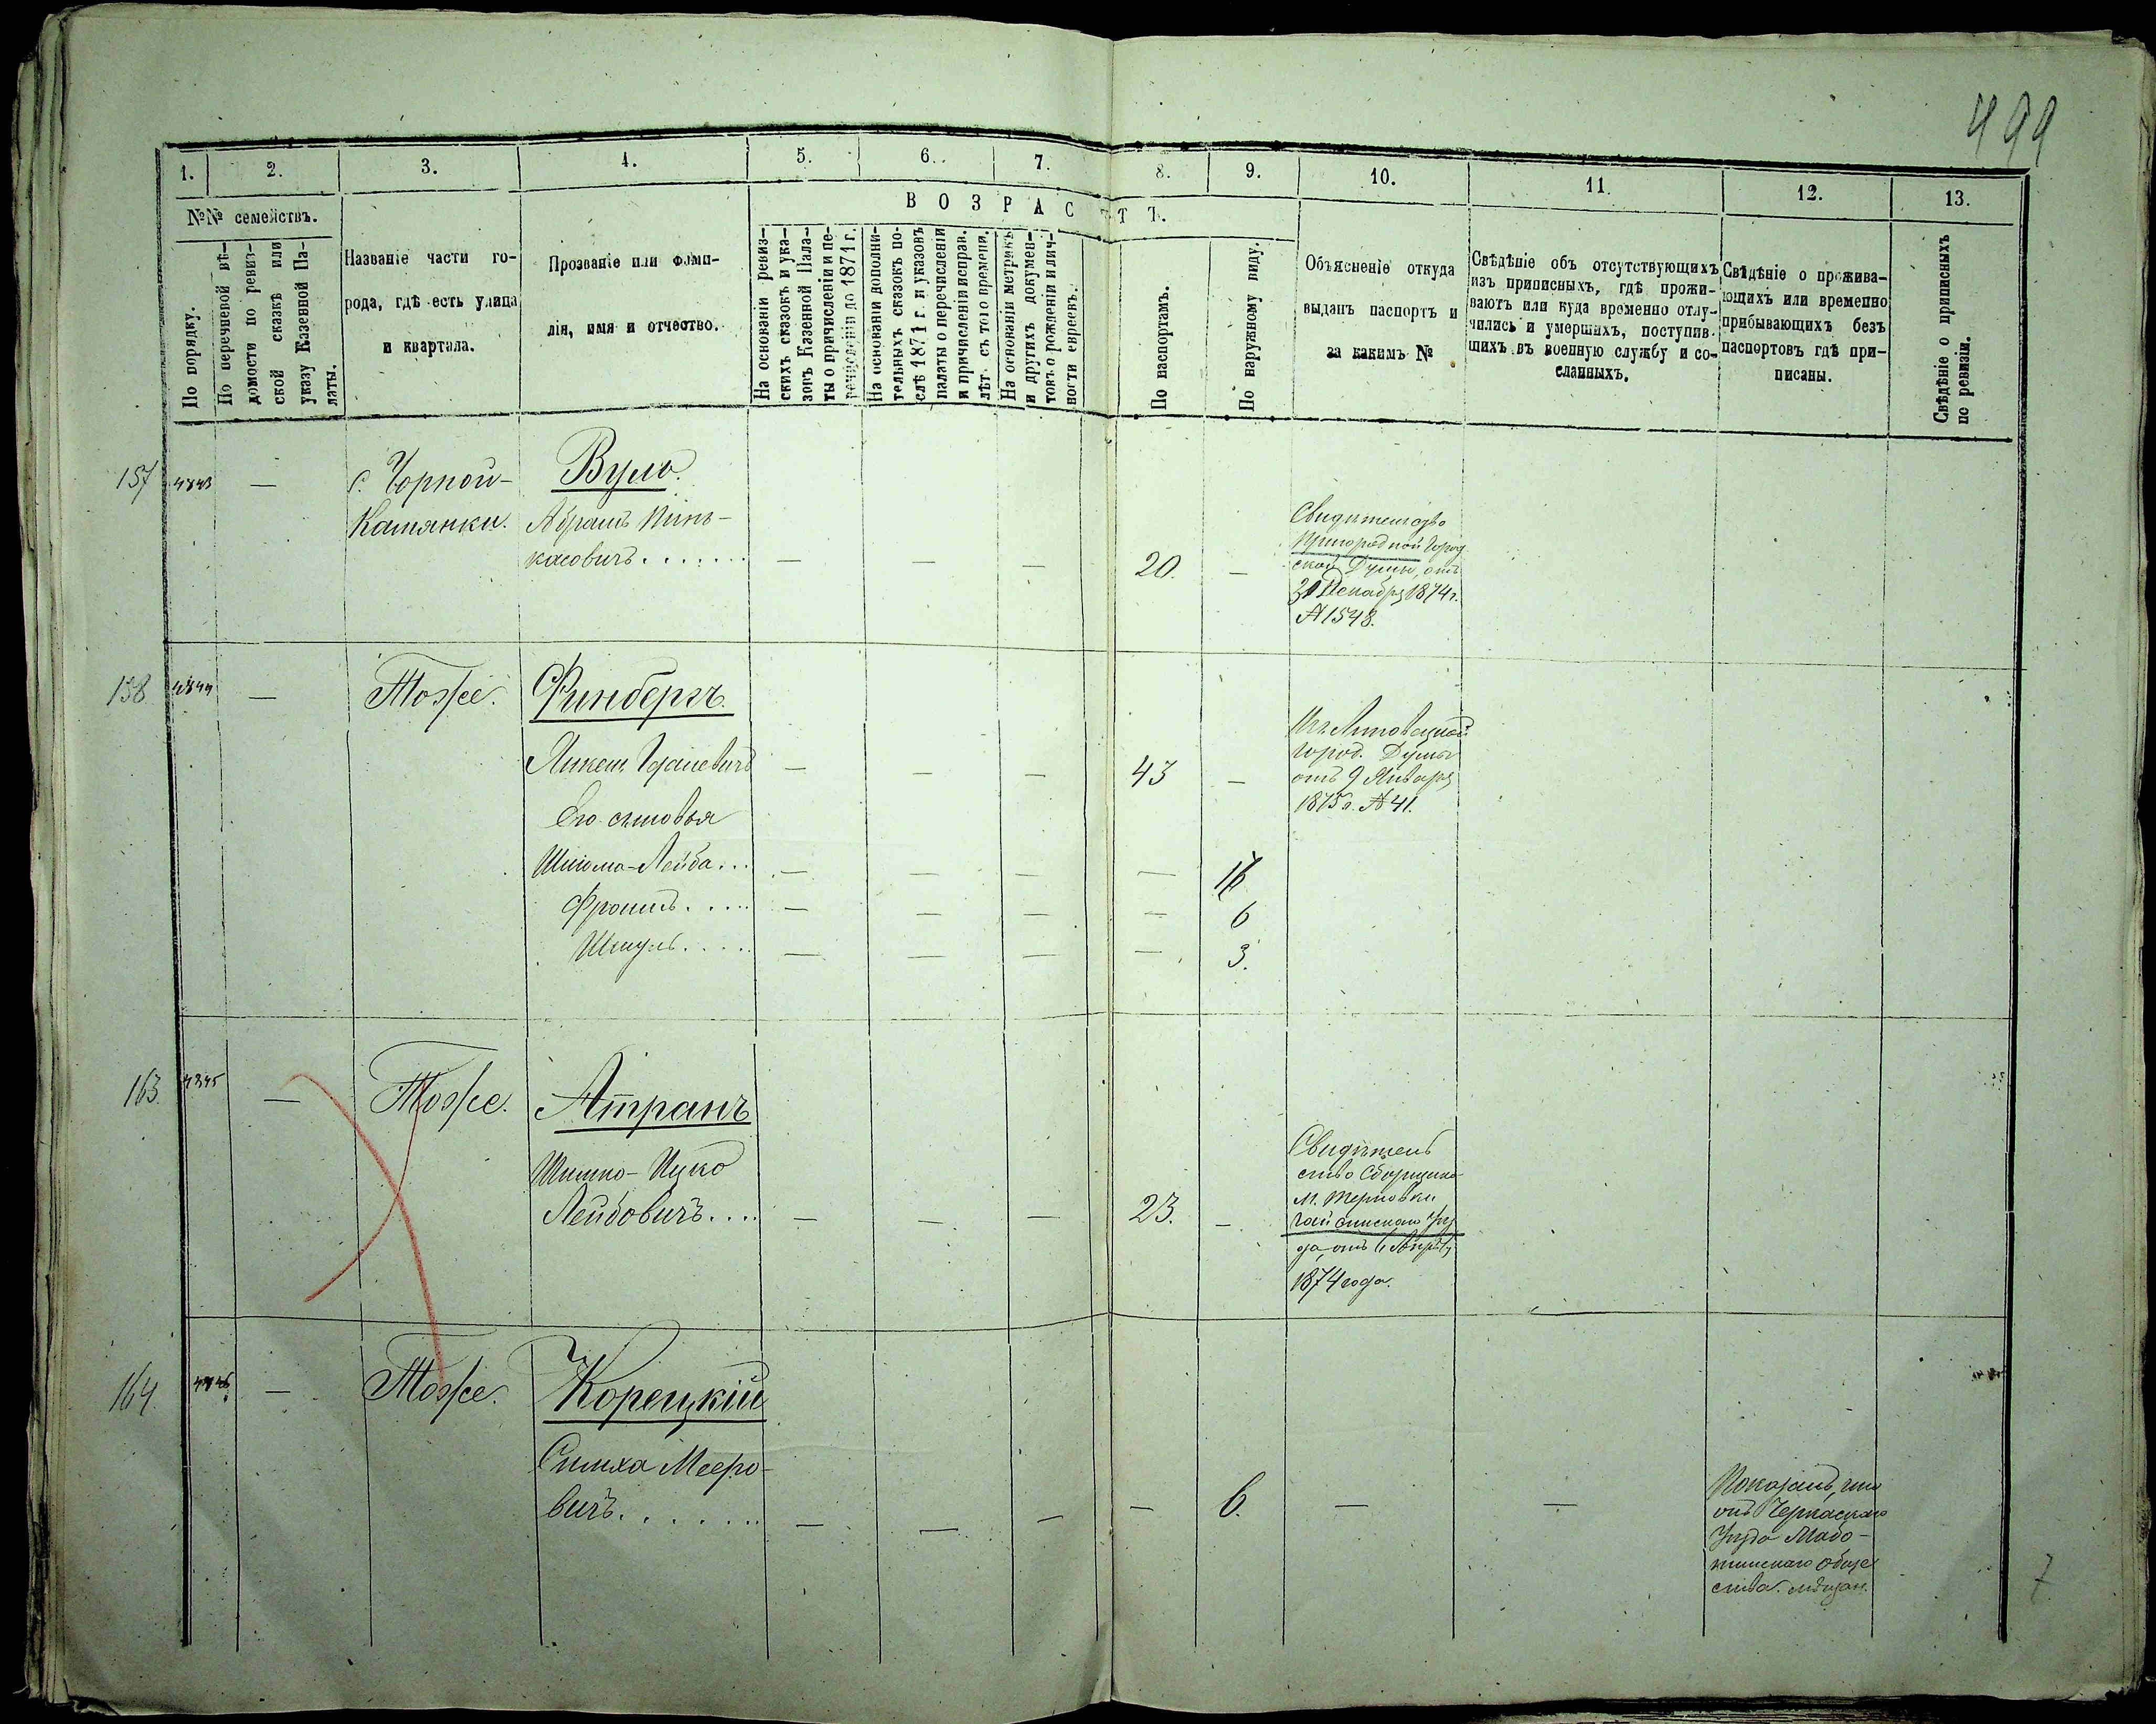 499
1. 2. 3. 4. 5. 6. 7. 8. 9. 10. 11. 12. 13.
№№ семействъ.
По порядку.
По перечневой вѣ-
домости по ревиз-
ской сказкѣ или
указу Казенной Па-
латы.
Названіе части го-
рода, гдѣ есть улица
и квартала.
Прозваніе или фами-
лія, имя и отчество.
ВОЗРАСТЪ.
На основаніи ревиз-
скихъ сказокъ и ука-
зовъ Казенной Пала-
ты о причисленіи и пе-
речисленіи до 1871 г.
На основаніи дополни-
тельныхъ сказокъ по-
слѣ 1871 г. и указовъ
палаты о перечисленіи
и причисленіи исправ.
лѣт съ того времени.
На основаніи метрикъ
и другихъ докумен-
товъ о рожденіи и лич-
ности евреевъ.
По паспортамъ.
По наружному виду.
Объясненіе откуда
выданъ паспортъ и
за какимъ №
Свѣдѣніе объ отсутствующихъ
изъ приписныхъ, гдѣ прожи-
ваютъ или куда временно отлу-
чились и умершихъ, поступив-
шихъ въ военную службу и со-
сланныхъ.
Свѣдѣніе о прожива-
ющихъ или временно
прибывающихъ безъ
паспортовъ гдѣ при-
писаны.
Свѣдѣніе о приписныхъ
по ревизіи.
157 4843 — с. Чорной- Вуль.
Камянки. Абрамъ Пинь-
касовичъ....... — — — 20. —
Свидѣтельство
Пригородной Город
ской Думы, отъ
31 Декабря 1874 г.
№ 1548.
158 4844 — Тоже. Финбергъ.
Янкель — — — 43 —
Изъ Липовецкой
Город. Думы
отъ 9 Января
1875 г. № 41.
Его сыновья
Шлюма-Лейба... — — — — 16
Фроимъ..... — — — — 6
Шмуль..... — — — — 3.
163. 4845 — Тоже. Атранъ
Шимко-Ицко
Лейбовичъ.... — — — 23. —
Свидѣтель
ство Сборщика
м. Терновки
Гайсинскаго Уѣз
да, отъ 6 Апрѣля
1874 года.
164. 4846 — Тоже. Корецкій
Симха Мееро-
вичъ....... — — — — 6. — —
Показалъ, что
онъ Черкаскаго
Уѣзда
общe
ства мѣщан.
7